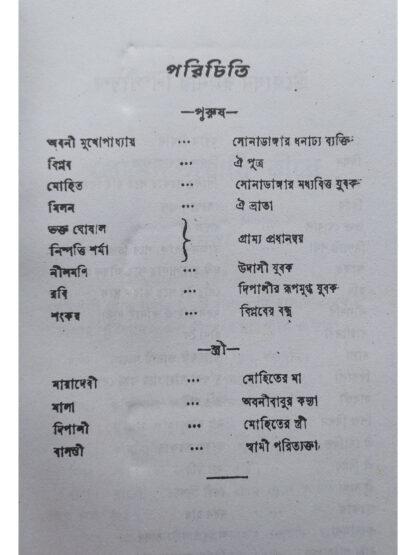 পরিচিতি
—পুরুষ—
অবনী মুখোপাধ্যায় ••• সোনাডাঙ্গার ধনাঢ্য ব্যক্তি
বিপ্লব ••• ঐ পুত্র
মোহিত ••• সোনাডাঙ্গার মধ্যবিত্ত যুবক
মিলন ••• ঐ ভ্রাতা
ভক্ত ঘোষাল
নিষ্পত্তি শর্মা } গ্রাম্য প্রধানদ্বয়
নীলমণি ••• উদাসী যুবক
রবি ••• দিপালীর রূপমুগ্ধ যুবক
শংকর ••• বিপ্লবের বন্ধু
—স্ত্রী—
মায়াদেবী ••• মোহিতের মা
মালা ••• অবনীবাবুর কন্যা
দিপালী ••• মোহিতের স্ত্রী
বাসন্তী ••• স্বামী পরিত্যক্তা